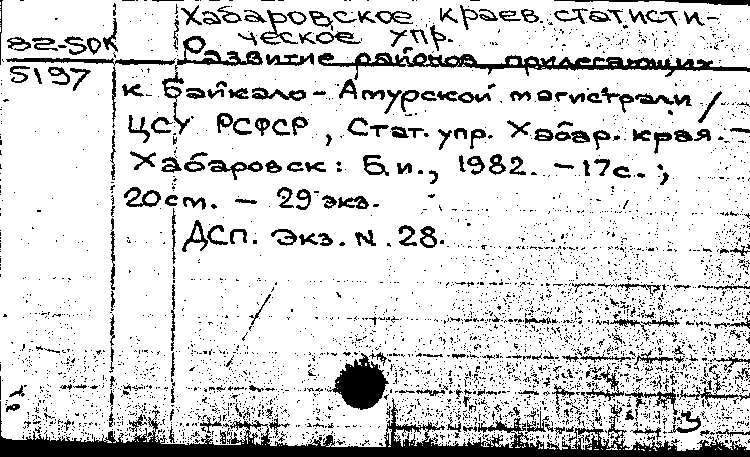 Хабаровское краев. статисти-
ческое упр.
82-50К
Развитие районов, прилегающих
5197
к Байкало-Амурской магистрали /
ЦСУ РСФСР, Стат. упр. Хабар. края. -
Хабаровск: Б.и., 1982. - 17с.;
20 см. - 29 экз.
ДСП. Экз. N. 28.
3